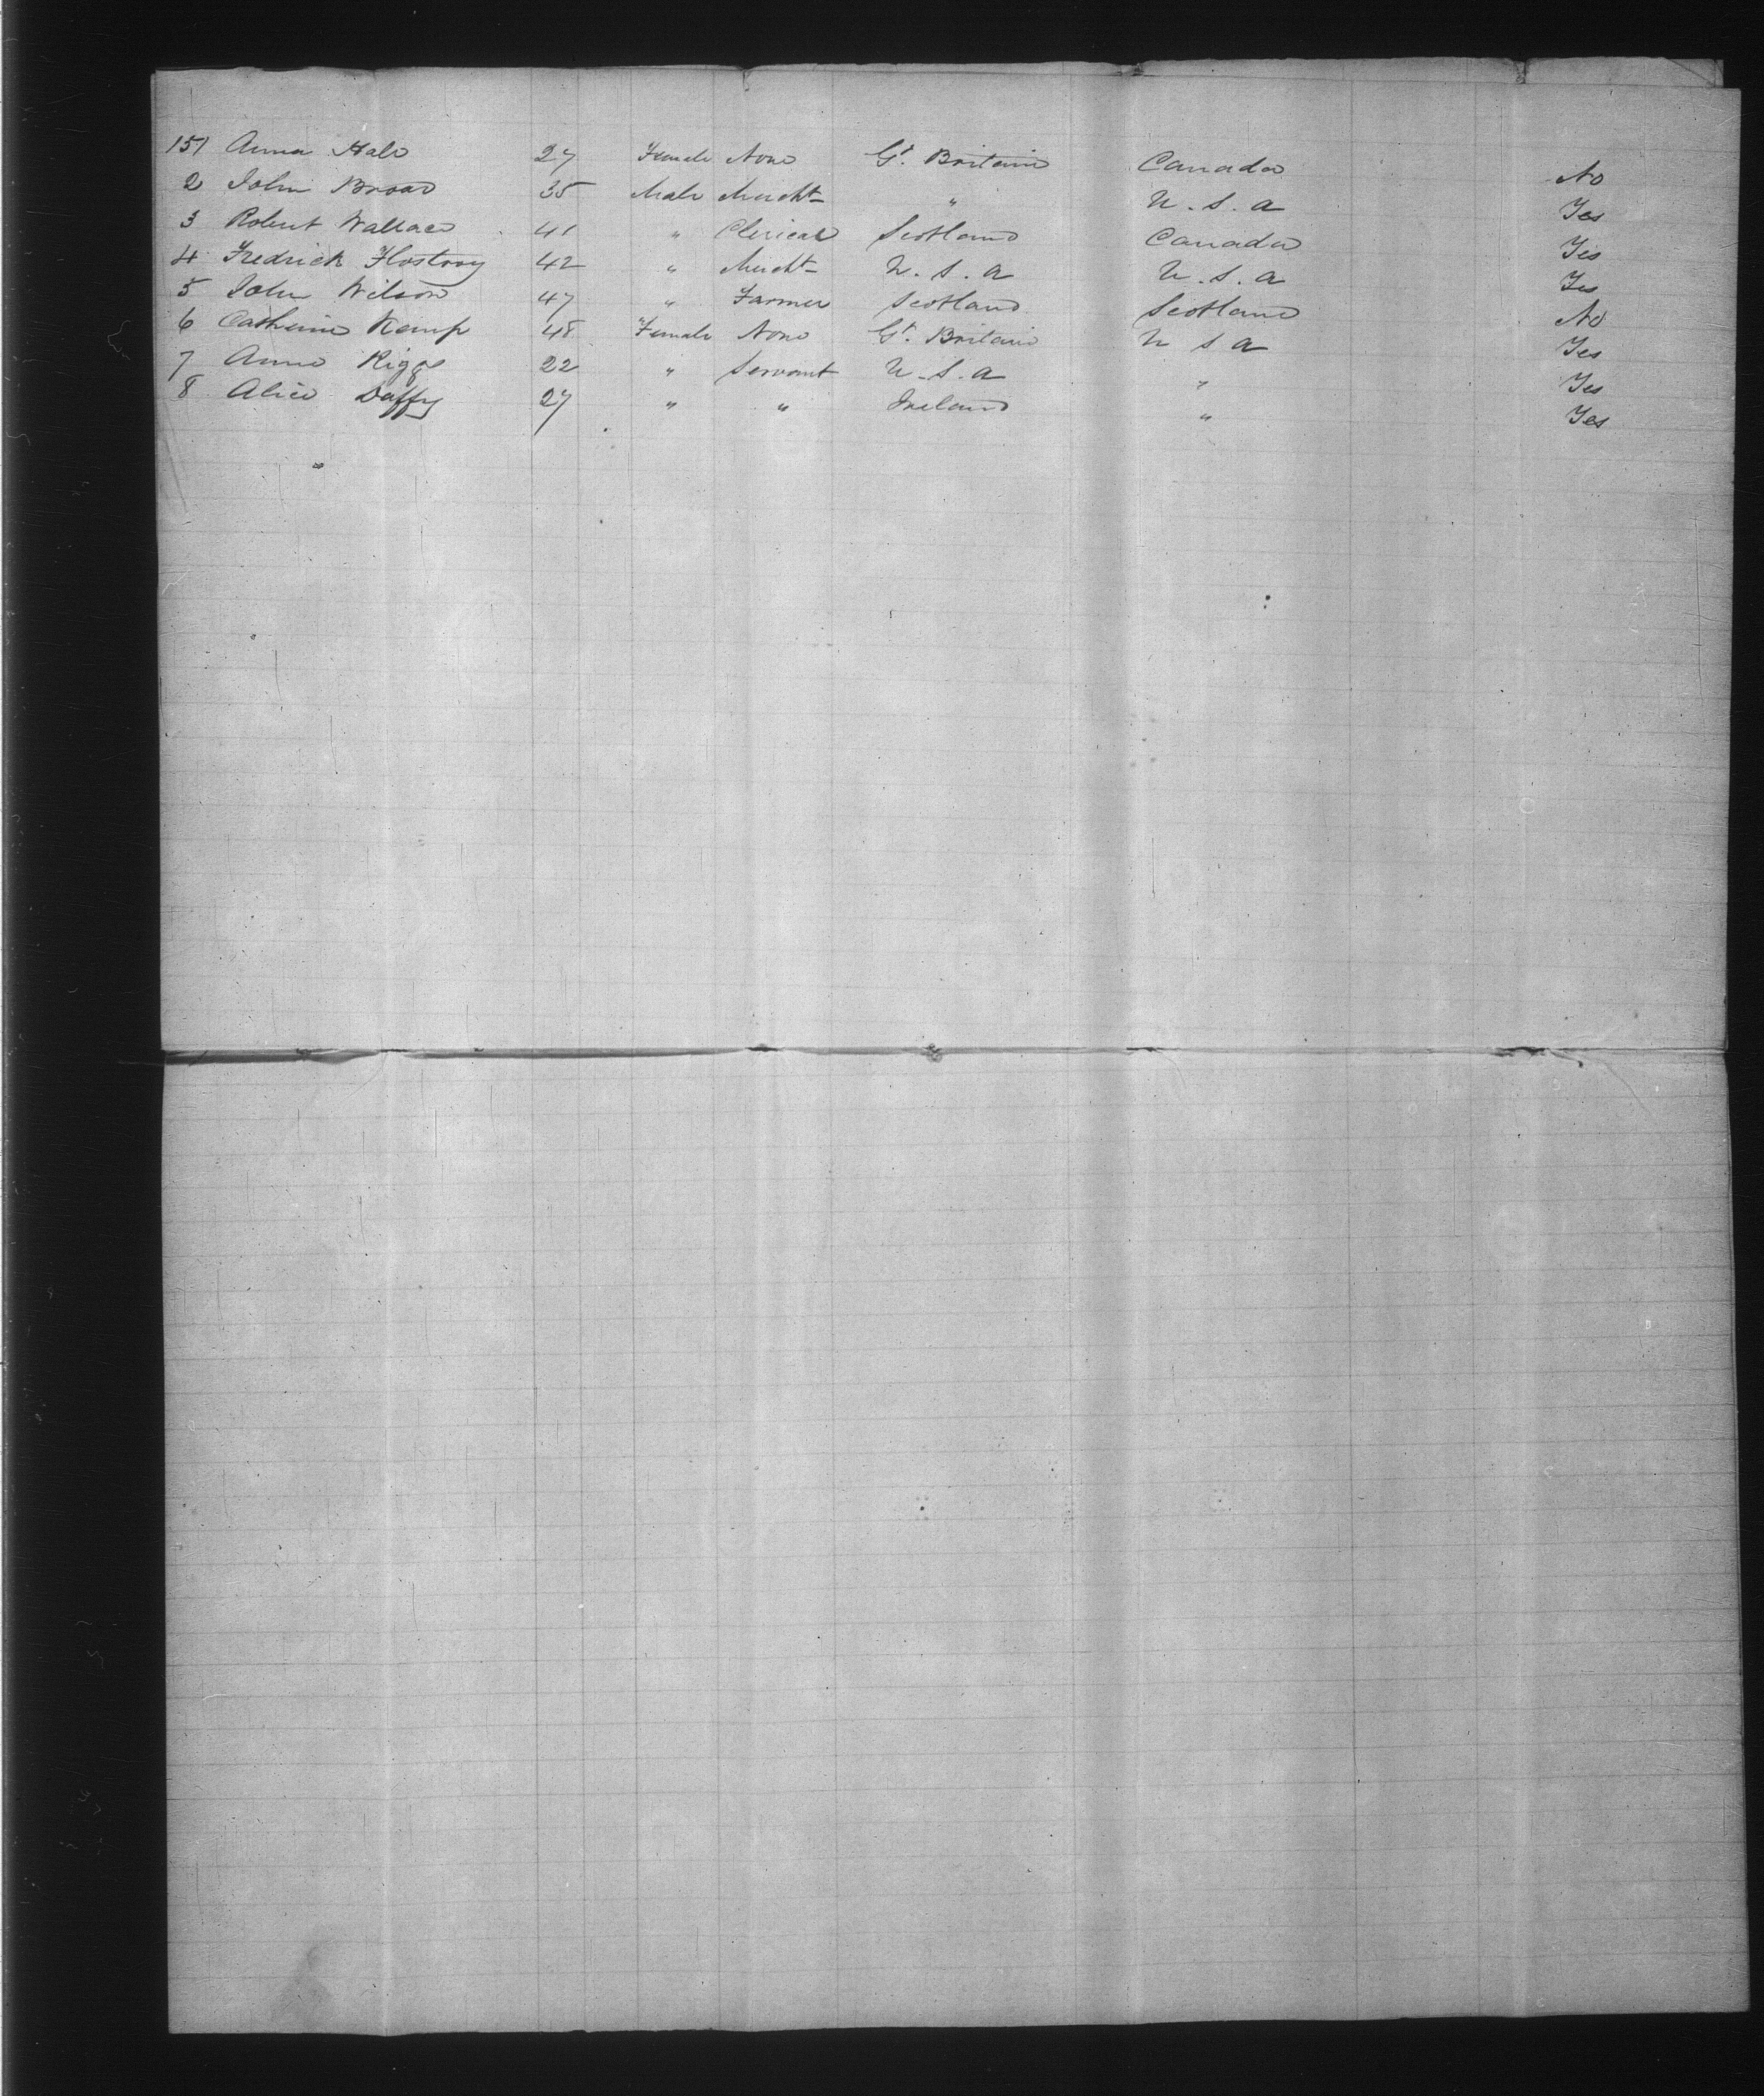 151 Anna Hale 27 Female None Gt. Britain Canada No
2 John Broad 35 Male Mercht " U.S.A Yes
3 Robert Wallace 41 " Clerical Scotland Canada Yes
4 Fredrick 42 " Mercht U.S.A U.S.A Yes
5 John Wilson 47 " Farmer Scotland Scotland No
6 Catherine Kemp 48 Female None Gt. Britain U S A Yes
7 Anne Rigge 22 " Servant U.S.A " Yes
8 Alice Duffy 27 " " Ireland " Yes